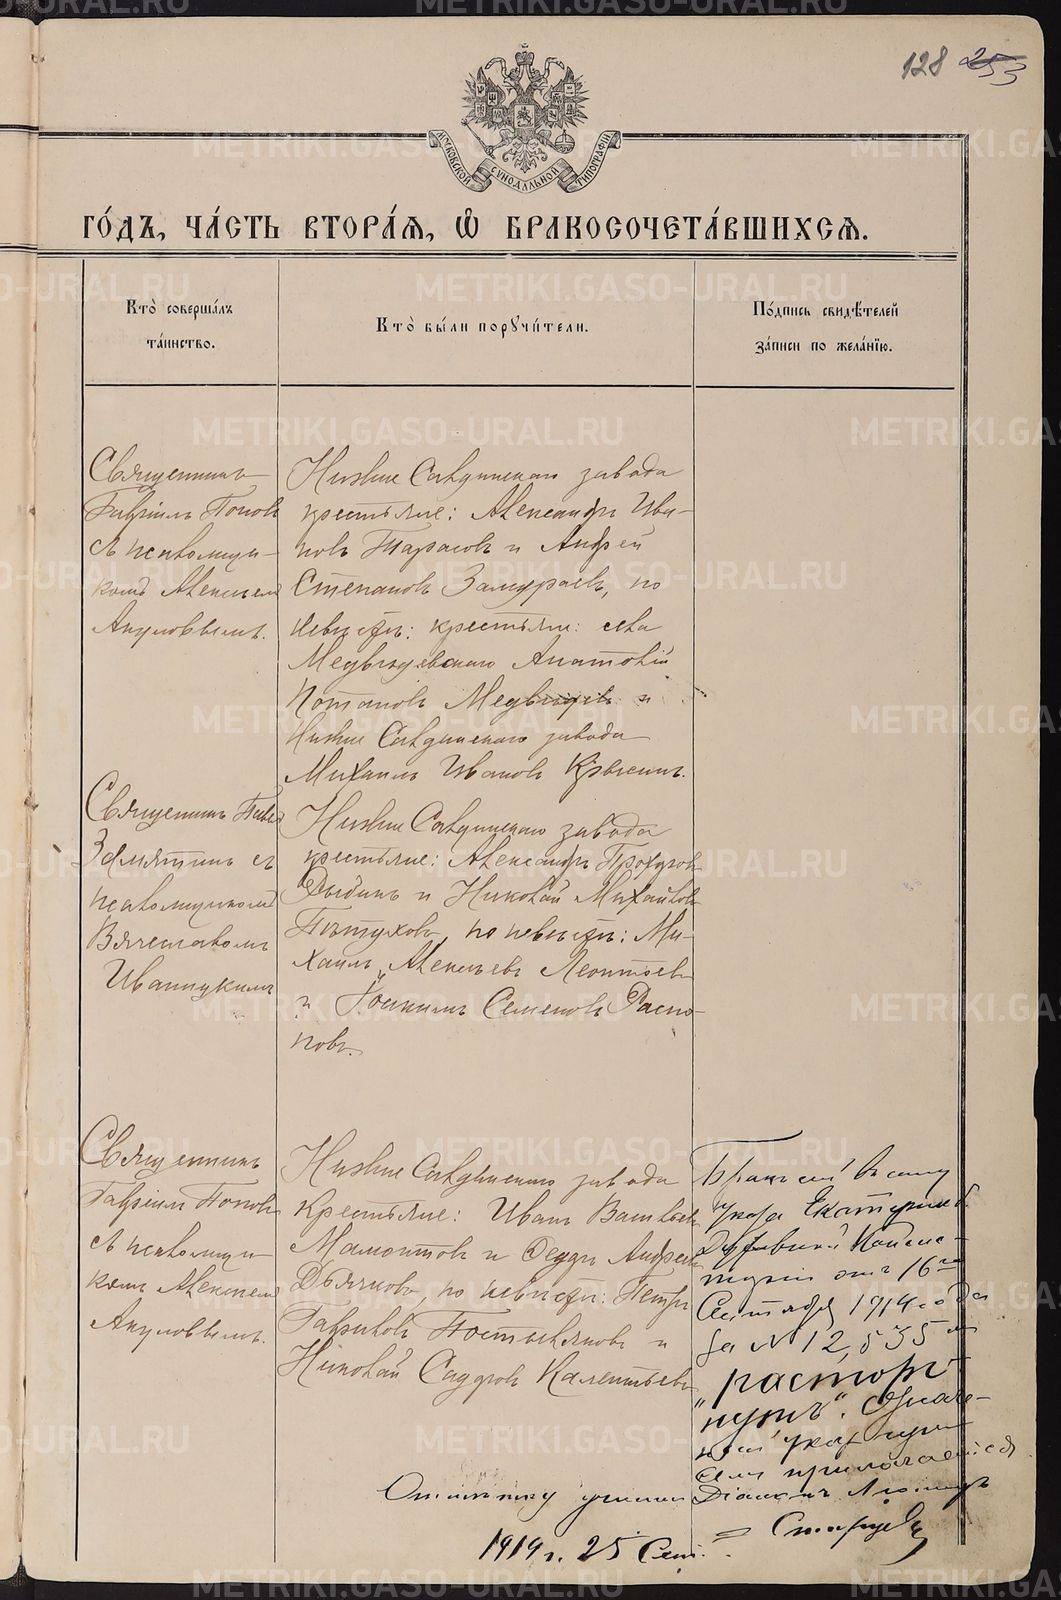 128 253
МОСКОВСКОЙ СУНОДАЛЬНОЙ ТИПОГРАФІИ
ГО́ДЪ, ЧА́СТЬ ВТОРА́Я, Ѽ БРАКОСОЧЕТА́ВШИХСЯ.
Кто̀ соверша́лъ
та́инство.
Кто̀ бы́ли порꙋчи́тели.
По́дпись свидѣ́телей
за́писи по жела́нїю.
Священникъ
Гавріилъ Поповъ
съ псаломщи-
комъ Алексѣем
Акуловымъ.
Нижне Салдинскаго завода
крестьяне: Александръ Ива-
новъ Тарасовъ и Андрей
Степановъ Замураевъ, по
невѣстѣ: крестьяне: села
Медвѣдевскаго Анатолій
Потаповъ Медвѣдевъ и
Нижне Салдинскаго завода
Михаилъ Ивановъ
Священникъ Павел
Замятинъ съ
псаломщикомъ
Вячеславомъ
Иваницкимъ
Нижне Салдинскаго завода
крестьяне: Александръ Прохоров
и Николай Михайлов
Пѣтуховъ, по невѣстѣ: Ми-
хаилъ Алексѣевъ Леонтьев
и Іоакимъ Семеновъ Распо-
повъ.
Священникъ
Гавріилъ Поповъ
съ псаломщи-
комъ Алексѣем
Акуловымъ.
Нижне Салдинскаго завода
крестьяне: Иванъ Васильев
Мамонтовъ и Ѳедоръ Андреев
Дьячковъ, по невѣстѣ: Петръ
Гавриловъ Постыляковъ и
Николай Сидоровъ Калентьевъ
Бракъ сей въ силу
указа Екатеринб.
Духовной Консис-
торіи отъ 16го
Сентября 1919 года
за № 12,535м
"расторг-
нутъ". Означе-
ный указ при
семъ прилагается
Отмѣтку учинилъ Діаконъ
1919 г. 25 Сент. Старцевъ
METRIKI.GASO-URAL.RU